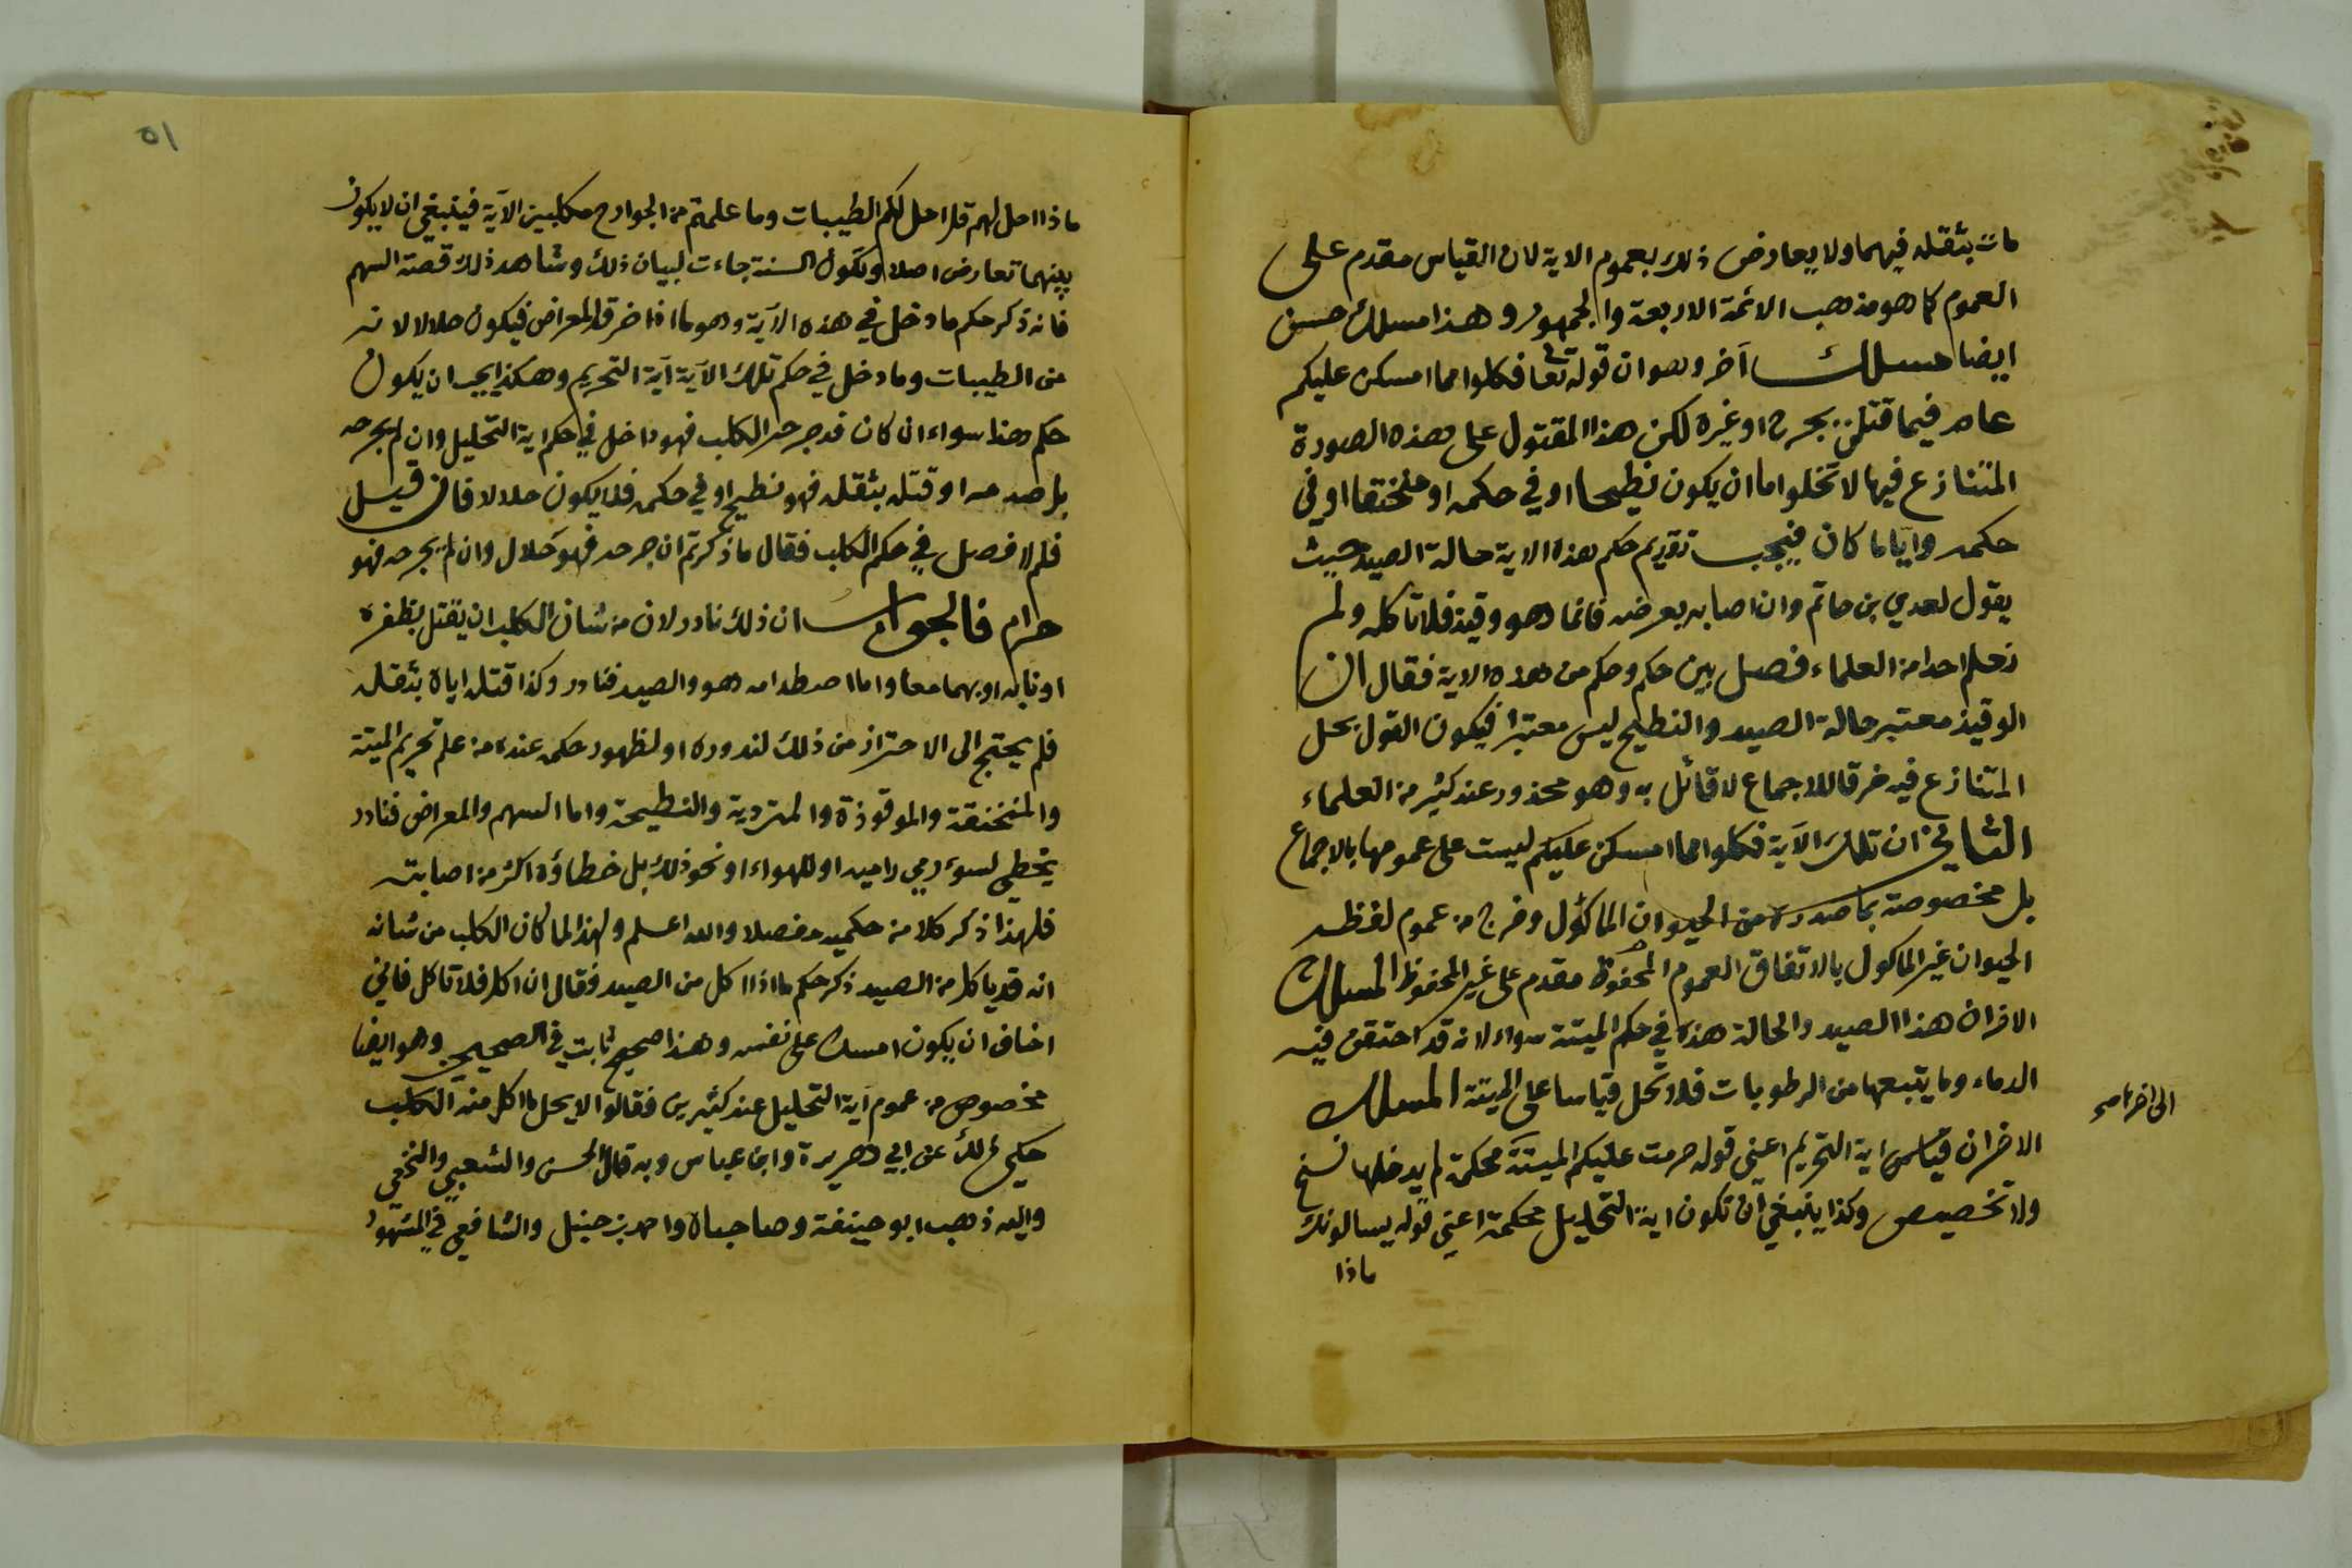 مات بثقله فيهما ولا يعارض ذلك بعموم الاية لان القياس مقدم على
العموم كما هو مذهب الائمة الاربعة والجمهور وهذا مسلك حسن
ايضا مسلك آخر وهو ان قوله تعالى فكلوا مما امسكن عليكم
عام فيما قتلن بجرح او غيره لكن هذا المقتول على هذه الصورة
المتنازع فيها لا تخلوا اما ان يكون نطيحا او في حكمه او منخنقا او في
حكمه وآيا ما كان فيجب تقديم حكم هذه الاية حالة الصيد حيث
يقول لعدي بن حاتم وان اصابه بعرضه فانما هو وقيذ فلا تأكله ولم
نعلم احدا من العلماء فصل بين حكم وحكم من هذه الاية فقال ان
الوقيذ معتبر حالة الصيد والنطيح ليس معتبرا فيكون القول بحل
المتنازع فيه خرقا للاجماع لا قائل به وهو محذور عند كثير من العلماء
الثاني ان تلك الآية فكلوا مما امسكن عليكم ليست على عمومها بالاجماع
بل مخصوصة بما صدن من الحيوان المأكول وخرج من عموم لفظه
الحيوان غير الماكول بالاتفاق العموم المحفوظ مقدم على غير المحفوظ المسلك
الاخر ان هذا الصيد والحالة هذه في حكم الميتة سواء لانه قد احتقن فيه
الدماء وما يتبعها من الرطوبات فلا تحل قياسا على الميتة المسلك
الى اخرها صح
الاخر ان اية التحريم اعني قوله حرمت عليكم الميتة محكمة لم يدخلها نسخ
ولا تخصيص وكذا ينبغي ان تكون اية التحليل محكمة اعني قوله يسالونك
ماذا
٥١
ماذا احل لهم قل احل لكم الطيبات وما علمتم من الجوارح مكلبين الآية فينبغي ان لا يكون
بينهما تعارض اصلا وتكون السنة جاءت لبيان ذلك وشاهد ذلك قصة السهم
فانه ذكر حكم ما دخل في هذه الآية وهو ما اذا خرقه المعراض فيكون حلالا لانه
من الطيبات وما دخل في حكم تلك الآية آية التحريم وهكذا يجب ان يكون
حكم هذا سواء ان كان قد جرحه الكلب فهو داخل في حكم اية التحليل وان لم يجرحه
بل صدمه او قتله بثقله فهو نطيح او في حكمه فلا يكون حلالا فان قيل
فلم لا فصل في حكم الكلب فقال ما ذكرتم ان جرحه فهو حلال وان لم يجرحه فهو
حرام فالجواب ان ذلك نادر لان من شان الكلب ان يقتل بظفره
او نابه او بهما معا واما اصطدامه هو والصيد فنادر وكذا قتله اياه بثقله
فلم يحتج الى الاحتراز من ذلك لندوره او لظهور حكمه عند من علم تحريم الميتة
والمنخنقة والموقوذة والمتردية والنطيحة واما السهم والمعراض فنادر
يخطي لسوء رمي راميه او للهواء او نحو ذلك بل خطاؤه اكثر من اصابته
فلهذا ذكر كلا من حكميه مفصلا والله اعلم ولهذا لما كان الكلب من شانه
انه قد ياكل من الصيد ذكر حكم ما اذا اكل من الصيد فقال ان اكل فلا تاكل فاني
اخاف ان يكون امسك على نفسه وهذا صحيح ثابت في الصحيحين وهو ايضا
مخصوص من عموم آية التحليل عند كثيرين فقالوا لا يحل ما اكل منه الكلب
حكي ذلك عن ابي هريرة وابن عباس وبه قال الحسن والشعبي والنخعي
واليه ذهب ابو حنيفة وصاحباه واحمد بن حنبل والشافعي في المشهور